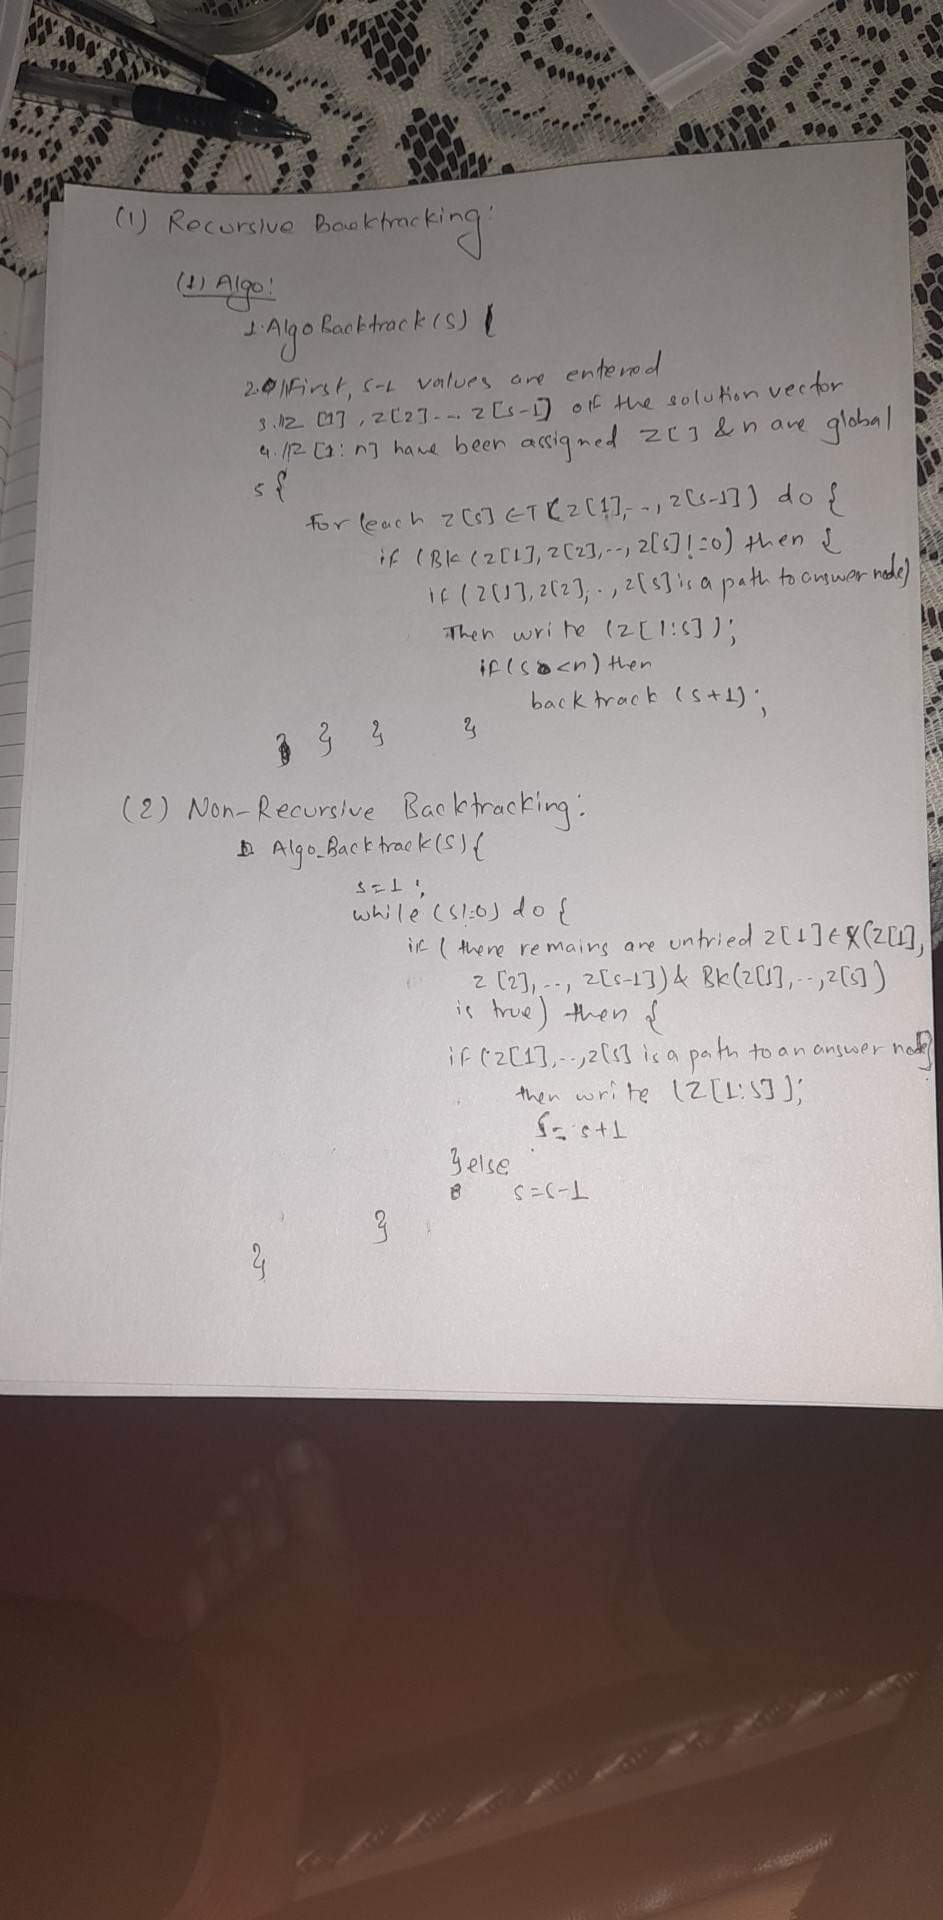 (1) Recursive Backtracking:
(1) Algo:
1. Algo Backtrack (s) {
2. // First, s-1 values are entered
3. // z [1], z[2]... z [s-1] of the solution vector
4. // z [1:n] have been assigned z[] & n are global
5 {
for (each z[s] ∈ T (z[1],.., z[s-1]) do {
if (BK (z[1], z[2],.., z[s] != 0) then {
if (z[1], z[2],.., z[s] is a path to answer node)
Then write (z[1:s]);
if (s < n) then
backtrack (s+1);
} } } }
(2) Non-Recursive Backtracking:
Algo_Backtrack(s) {
s=1;
while (s!=0) do {
if (there remains are untried z[1] ∈ X(z[1],
z [2], .., z[s-1]) & BK(z[1],..,z[s])
is true) then {
if (z[1],..,z[s] is a path to an answer node)
then write (z[1:s]);
s= s+1
} else
s=s-1
}
}